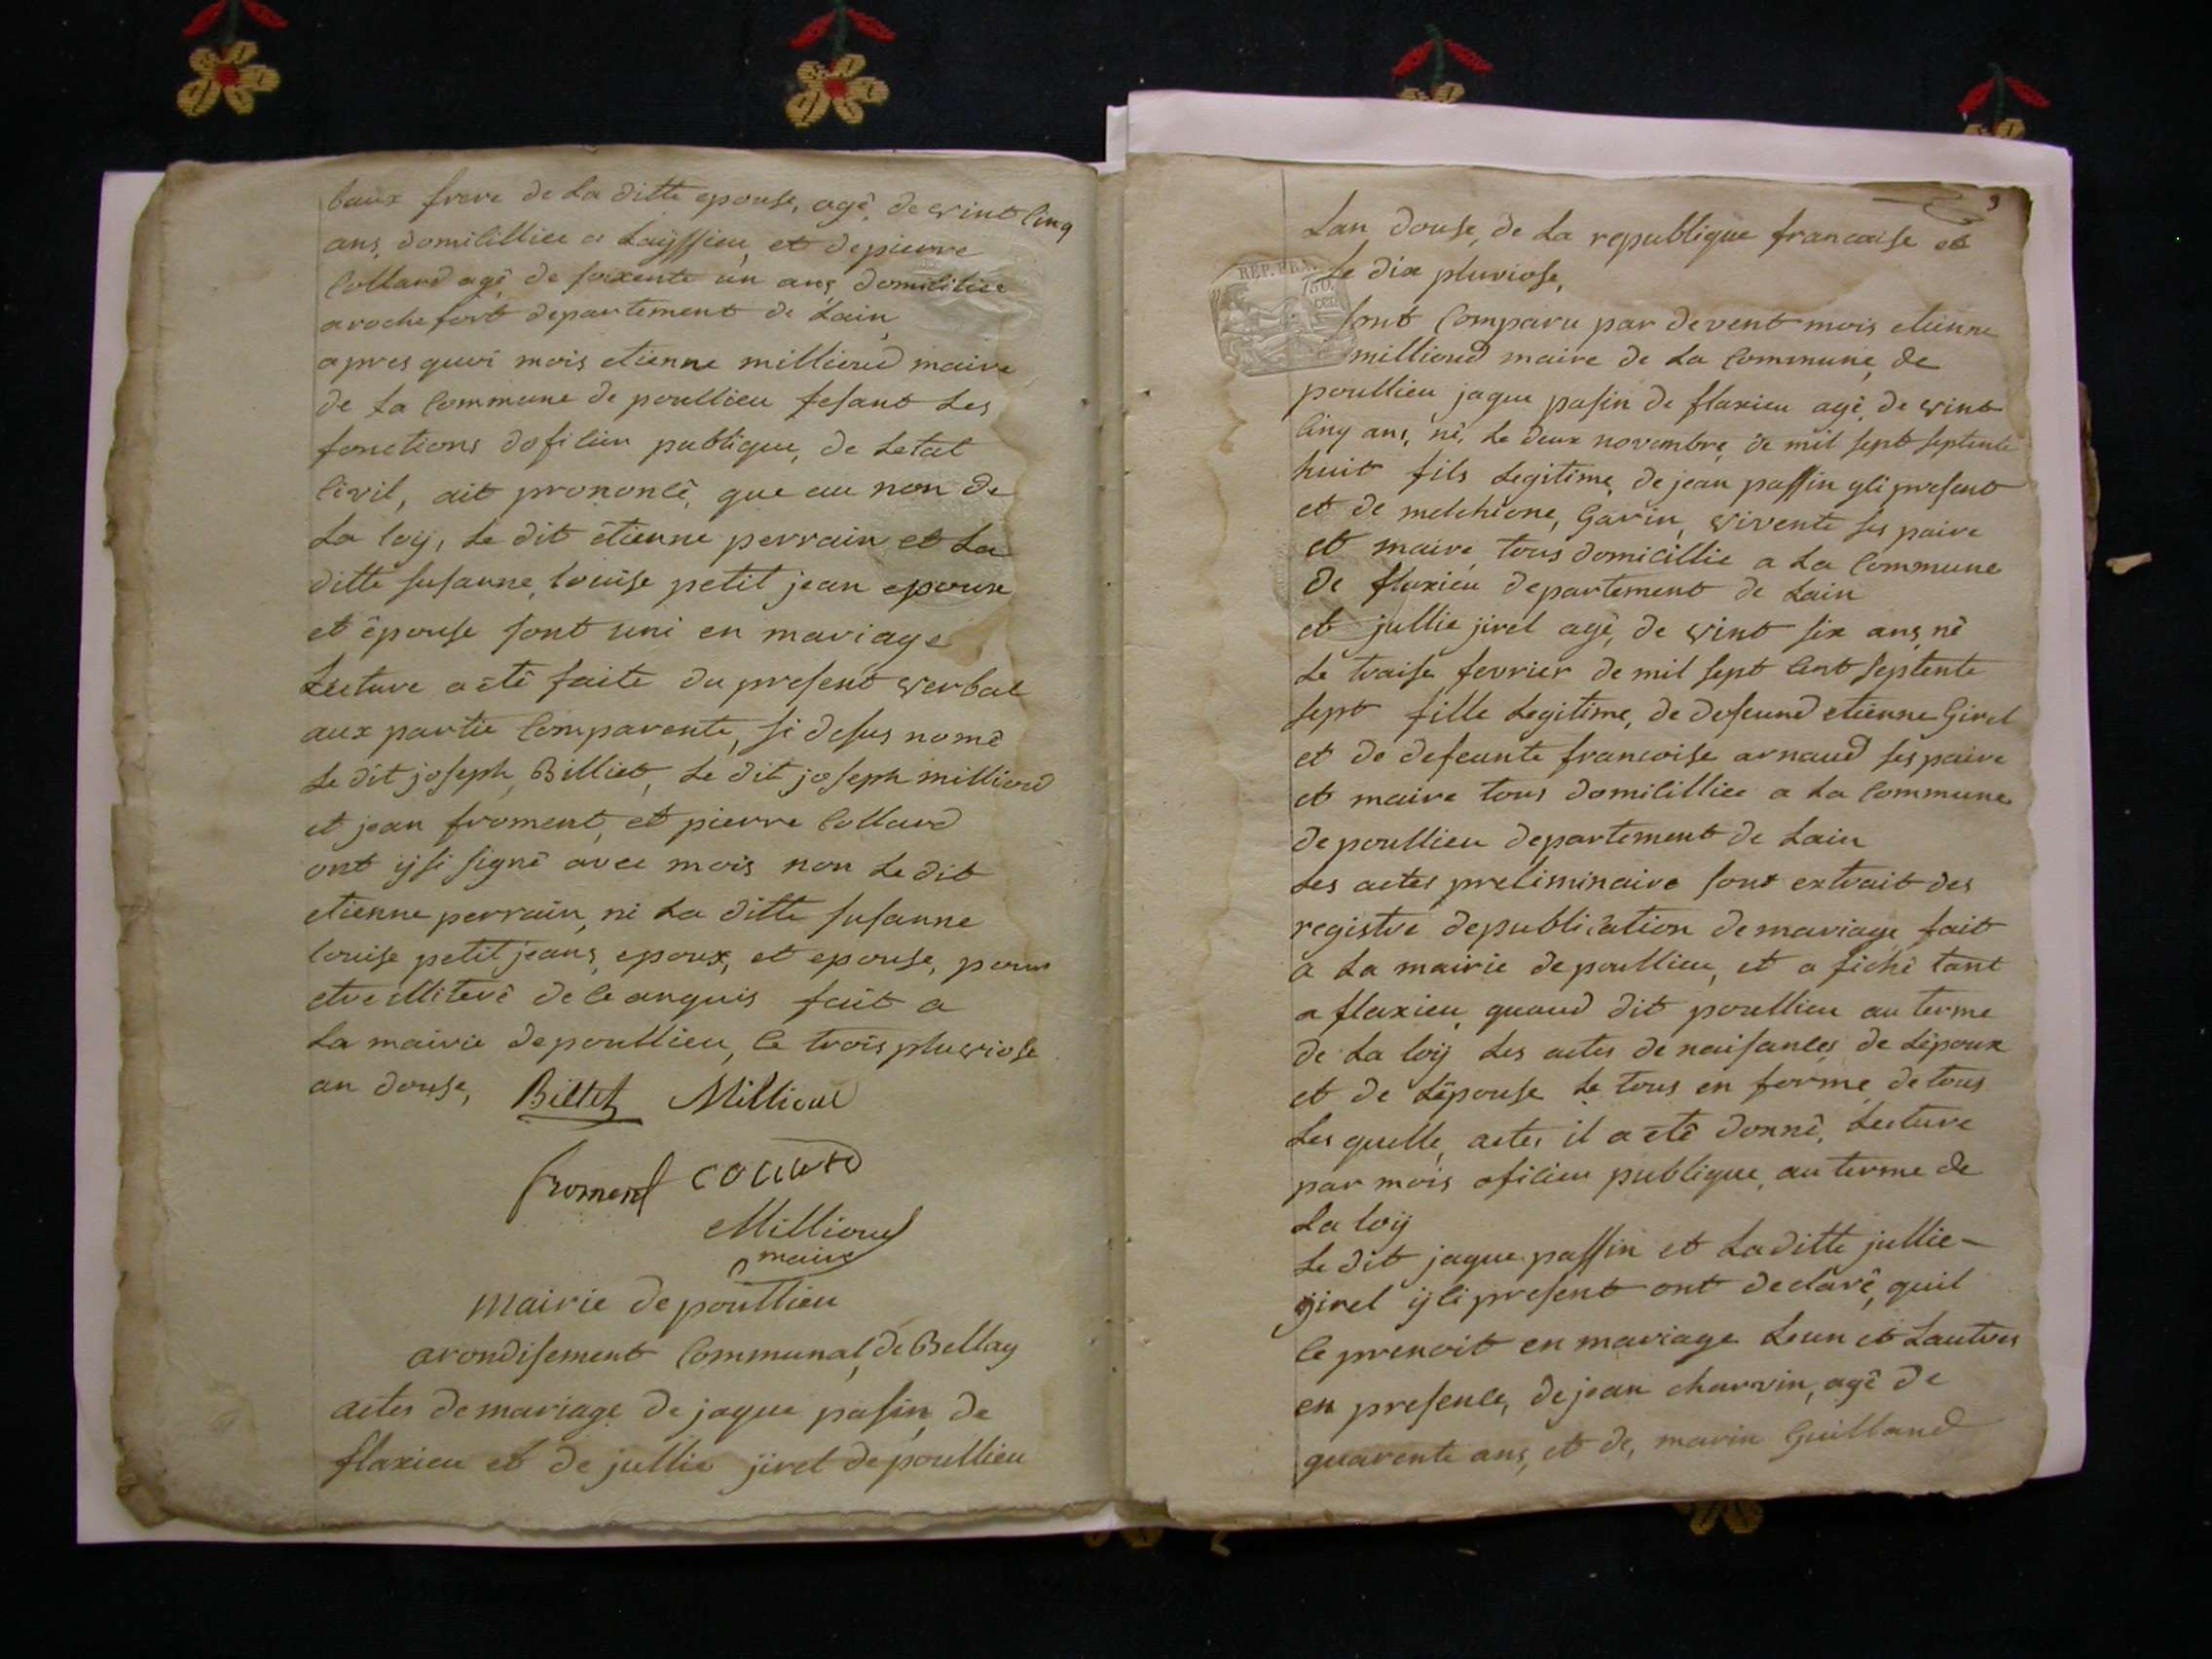 baux frere de La ditte epouse, agê, de vint cinq
ans, domicilliee a Laÿssieu, et de pierre
Collard agê de soixente un ans domiciliee
a rochefort departement de Lain
apres quoi mois etienne millioud maire
de La Commune de poullieu fesant Les
fonctions doficier publique, de Letat
Civil, ait prononcê, que au non de
La loÿ, Le dit êtienne perrain et La
ditte susanne, louise petit jean epoux
et êpouse sont uni en mariage
Lecture a êtê faite du present verbal
aux partie Comparente, si desus nomê
Le dit joseph Billiet, Le dit joseph millioud
et jean froment, et pierre Collard
ont ÿsi signê avec mois non Le dit
etienne perrain, ni La ditte susanne
louise petit jeans, epoux, et epouse, pour
etre illiterê de ce anquis fait a
La mairie de poullieu, ce trois pluviose
an douse, Billiet Millioud
froment collard
Millioud
maire
Mairie de poullieu
arondisement Communal, de Bellay
actes de mariage de jaque pasin, de
flaxieu et de jullie jirel de poullieu
3
Lan douse, de La republique francaise et
Le dix pluviose,
REP. FRA.
150.
cen
sont Comparu par devent mois etienne
millioud maire de La Commune, de
poullieu jaque pasin de flaxieu agê, de vint
cinq ans, nê, Le deux novembre, de mil sept septente
huit fils Legitime, de jean passin ÿci present
et de melchione, Garin, vivente ses paire
et maire, tous domicillie a La Commune
de flaxieu departement de Lain
et jullie jirel agê, de vint six ans nê
Le traise fevrier de mil sept Cent septente
sept fille Legitime, de defeund etienne Girel
et de defeunte francoise arnaud ses paire
et maire tous domicilliee a La Commune
de poullieu departement de Lain
Les actes preliminaire sont extrait des
registre de publication de mariage fait
a La mairie de poullieu, et a fichê tant
a flaxieu, quaud dit poullieu au terme
de La loÿ Les actes de naisances, de Lêpoux
et de Lêpouse Le tous en forme, de tous
Les quelle, actes il a êtê donnê, Lecture
par mois oficieu publique, au terme de
La loÿ
Le dit jaque passin et La ditte jullie
jirel ÿci present ont declarê, quil
ce prenoit en mariage Leun et Lautres
en presence, de jean charvin, agê de
quarente ans, et de, marin Guilland